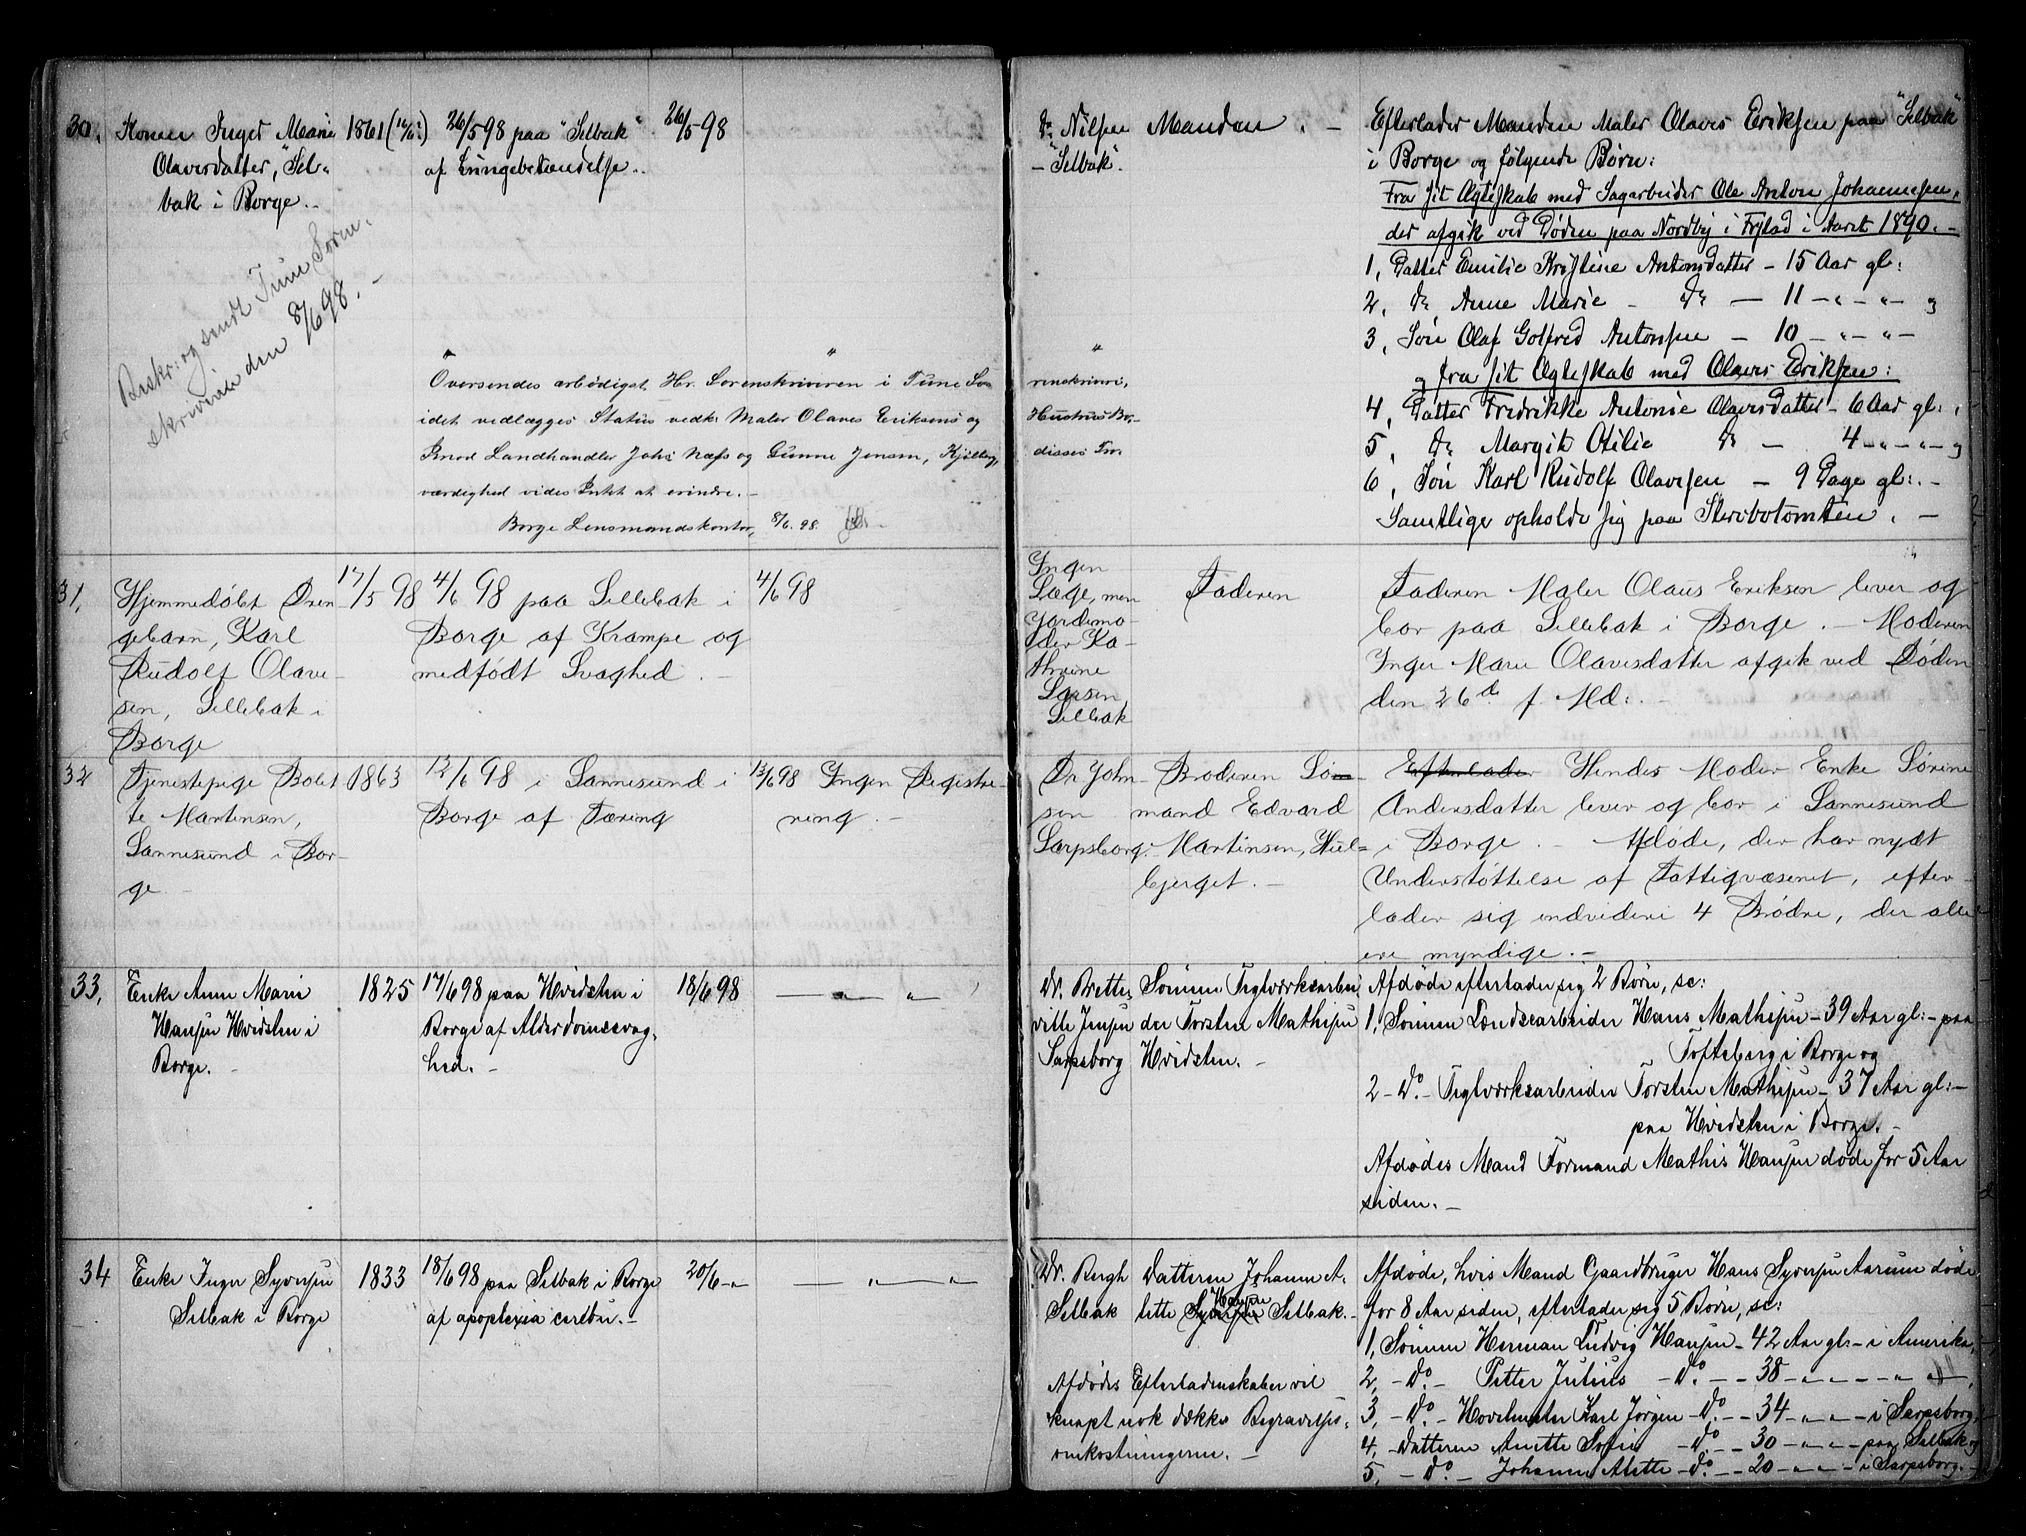 30, Konen Inger Marie
Olavesdatter, "Sel-
bak i Borge.
1861
26/5 98 paa "Selbak"
af Lungebetændelse.
26/5-98
Dr. Nilsen
- "Selbak".
Manden. -
Efterlader Manden Maler Olaves Eriksen paa "Selbak"
i Borge og følgende Børn:
Fra sit Ægteskab med Sagarbeider Ole Anton Johannesen,
der afgik ved Døden paa Nordby i F:stad i Aaret 1890. -
1, Datter Emilie Kristine Antonsdatter - 15 Aar gl:
2, Do Anne Marie - Do - 11 - " - " - og
3, Søn Olaf Gotfred Antonsen - 10 - " - " -
og fra sit Ægteskab med Olaves Eriksen:
4, Datter Fredrikke Antonie Olavesdatter - 6 Aar gl:,
5, Do Margit Otilie Do - 4 - " - " - og
6, Søn Karl Rudolf Olavesen - 9 Dage gl:. -
Samtlige opholde sig paa Stervbotomten. -
Beskr: og sendt Tune Soren-
skriverie den 8/6 98. -
" " "
Oversendes ærbødigst Hr. Sorenskriveren i Tune So-
renskriveri,
idet vedlægges Status vedk: Maler Olaves Eriksens og
Hustrus Bo,
Landhandler Johs Næss og Gunne Jensen, Kjølberg,
disses Tro-
værdighed vides Intet at erindre. -
Borge Lensmandskontor, 8/6. 98.
31, Hjemmedøbt Dren-
gebarn, Karl
Rudolf Olave-
sen, Sellebak i
Borge
17/5 98
4/6 98 paa Sellebak i
Borge af Krampe og
medfødt Svaghed. -
4/6 98
Ingen
Læge, men
Jordemo-
der Ka-
thrine
Larsen
Selbak
Faderen
Faderen Maler Olaus Eriksen lever og
bor paa Sellebak i Borge. - Moderen
Inger Marie Olavesdatter afgik ved Døden
den 26d f. Md:. -
32 Tjenestepige Bolet-
te Martinsen,
Sannesund i Bor-
ge -
1863
12/6 98 i Sannesund i
Borge af Tæring
13/6 98
Ingen Registre-
ring. -
Dr John-
sen
Sarpsborg.
Broderen Sø-
mand Edvard
Martinsen, Hul-
bjerget. -
Efterlader Hendes Moder Enke Sørine
Andersdatter lever og bor i Sannesund
i Borge. - Afdøde, der har nydt
Understøttelse af Fattigvæsenet, efter-
lader sig endvidere 4 Brødre, der alle
ere myndige. -
33, Enke Anne Marie
Hansen Hvidsten i
Borge. -
1825
17/6 98 paa Hvidsten i
Borge af Alderdomssvag-
hed. -
18/6 98
— " — " —
Dr. Brette-
ville Jensen
Sarpsborg
Sønnen Teglværksarbei-
der Torsten Mathisen
Hvidsten. -
Afdøde efterlader sig 2 Børn, sc:
1, Sønnen Lændsearbeider Hans Mathisen - 39 Aar gl: - paa
Tofteberg i Borge og
2 - Do. - Teglværksarbeider Torsten Mathisen - 37 Aar gl: -
paa Hvidsten i Borge. -
Afdødes Mand Formand Mathis Hansen døde for 5 Aar
siden. -
34 Enke Inger Syversen
Selbak i Borge
1833
18/6 98 paa Selbak i Borge
af apoplexia cerebri. -
20/6 - "
— " — " —
Dr. Bergh
Selbak
Datteren Johanne A-
lette Syversen Hansen Selbak. -
Afdødes Efterladenskaber vil
knapt nok dække Begravelses-
omkostningerne. -
Afdøde, hvis Mand Gaardbruger Hans Syversen Aarum døde
for 8 Aar siden, efterlader sig 5 Børn, sc:
1, Sønnen Herman Ludvig Hansen - 42 Aar gl: - i Amerika,
2, - Do. - Petter Julius - Do. - 38 - " - " - " - " -,
3, - Do. - Hovelmester Karl Jørgen - Do. - 34 - " - " - i Sarpsborg,
4, - Datteren Anette Sofie - Do. - 30 - " - " - paa Selbak og
5, - Do. - Johanne Alette - Do. - 20 - " - " - i Sarpsborg. -